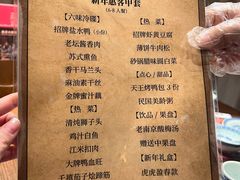 新年惠客甲套
(6-8人餐)
【六味冷碟】
招牌盐水鸭 (份)
老坛酱香肉
苏式熏鱼
香干马兰头
麻油素干丝
金牌蜜汁藕
【热 菜】
清炖狮子头
鸡汁白鱼
江米扣肉
大牌鸭血旺
【热 菜】
招牌虾黄豆腐
薄饼牛肉松
砂锅腊味圆白菜
【点心/甜品】
天王烤鸭包 3份
民国美龄粥
【饮品/果盘】
老南京酸梅汤
赠送中果盘
【新年礼盒】
虎虎盈春款